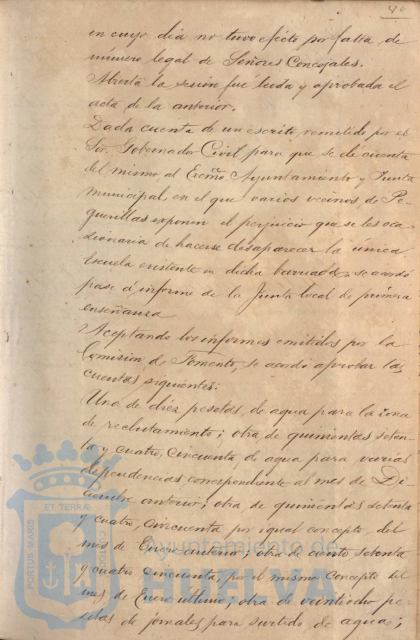 40
en cuyo dia no tuvo efecto por falta de
número legal de Señores Concejales.
Abierta la sesion fué leida y aprobada el
acta de la anterior.
Dada cuenta de un escrito remitido por el
Sor. Gobernador Civil para que se dé cuenta
del mismo al Excmo. Ayuntamiento y Junta
municipal, en el que varios vecinos de Pe-
guerillas exponen el perjuicio que se les oca-
sionaria de hacerse desaparecer la única
Escuela existente en dicha barriada, se acordó
pase á informe de la Junta local de primera
enseñanza
Aceptando los informes emitidos por la
Comision de Fomento, se acordó aprobar las
cuentas siguientes:
Una de diez pesetas, de agua para la zona
de reclutamiento; otra de quinientas seten-
ta y cuatro, cincuenta de agua para varias
dependencias correspondiente al mes de Di-
ciembre anterior; otra de quinientas setenta
y cuatro, cincuenta por igual concepto del
mes de Enero anterior; otra de ciento setenta
y cuatro cincuenta, por el mismo concepto del
mes de Enero último; otra de veintiocho pe-
setas de jornales para surtido de agua;
PORTUS MARIS
ET TERRÆ
Ayuntamiento de
HUELVA